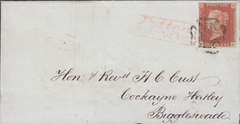 POSTAGE
Hon & Revd H C Cust
Cockayne Hatley
Biggleswade